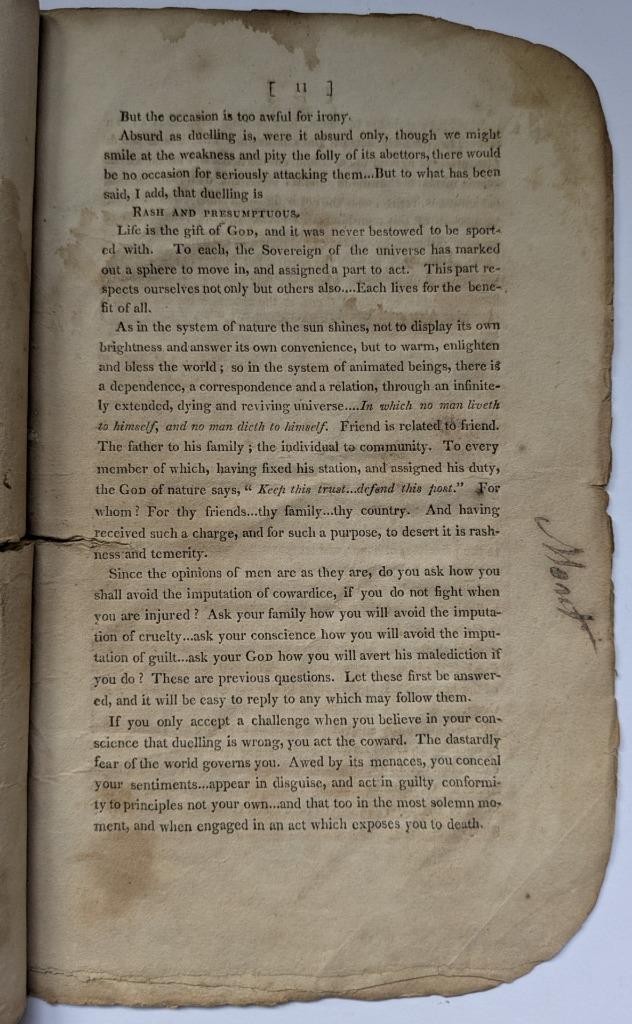 [ 11 ]
But the occasion is too awful for irony.
Absurd as duelling is, were it absurd only, though we might
smile at the weakness and pity the folly of its abettors, there would
be no occasion for seriously attacking them...But to what has been
said, I add, that duelling is
RASH AND PRESUMPTUOUS.
Life is the gift of GOD, and it was never bestowed to be sport-
ed with. To each, the Sovereign of the universe has marked
out a sphere to move in, and assigned a part to act. This part re-
spects ourselves not only but others also....Each lives for the bene-
fit of all.
As in the system of nature the sun shines, not to display its own
brightness and answer its own convenience, but to warm, enlighten
and bless the world ; so in the system of animated beings, there is
a dependence, a correspondence and a relation, through an infinite-
ly extended, dying and reviving universe....In which no man liveth
to himself, and no man dieth to himself. Friend is related to friend.
The father to his family ; the individual to community. To every
member of which, having fixed his station, and assigned his duty,
the GOD of nature says, " Keep this trust...defend this post." For
whom ? For thy friends...thy family...thy country. And having
received such a charge, and for such a purpose, to desert it is rash-
ness and temerity.
Since the opinions of men are as they are, do you ask how you
shall avoid the imputation of cowardice, if you do not fight when
you are injured ? Ask your family how you will avoid the imputa-
tion of cruelty...ask your conscience how you will avoid the impu-
tation of guilt...ask your GOD how you will avert his malediction if
you do ? These are previous questions. Let these first be answer-
ed, and it will be easy to reply to any which may follow them.
If you only accept a challenge when you believe in your con-
science that duelling is wrong, you act the coward. The dastardly
fear of the world governs you. Awed by its menaces, you conceal
your sentiments...appear in disguise, and act in guilty conformi-
ty to principles not your own...and that too in the most solemn mo-
ment, and when engaged in an act which exposes you to death.